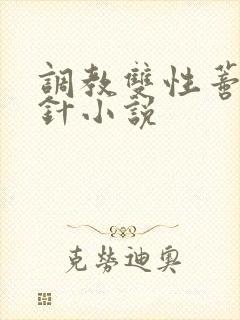 調教雙性蓄
針小說
克勞迪奧